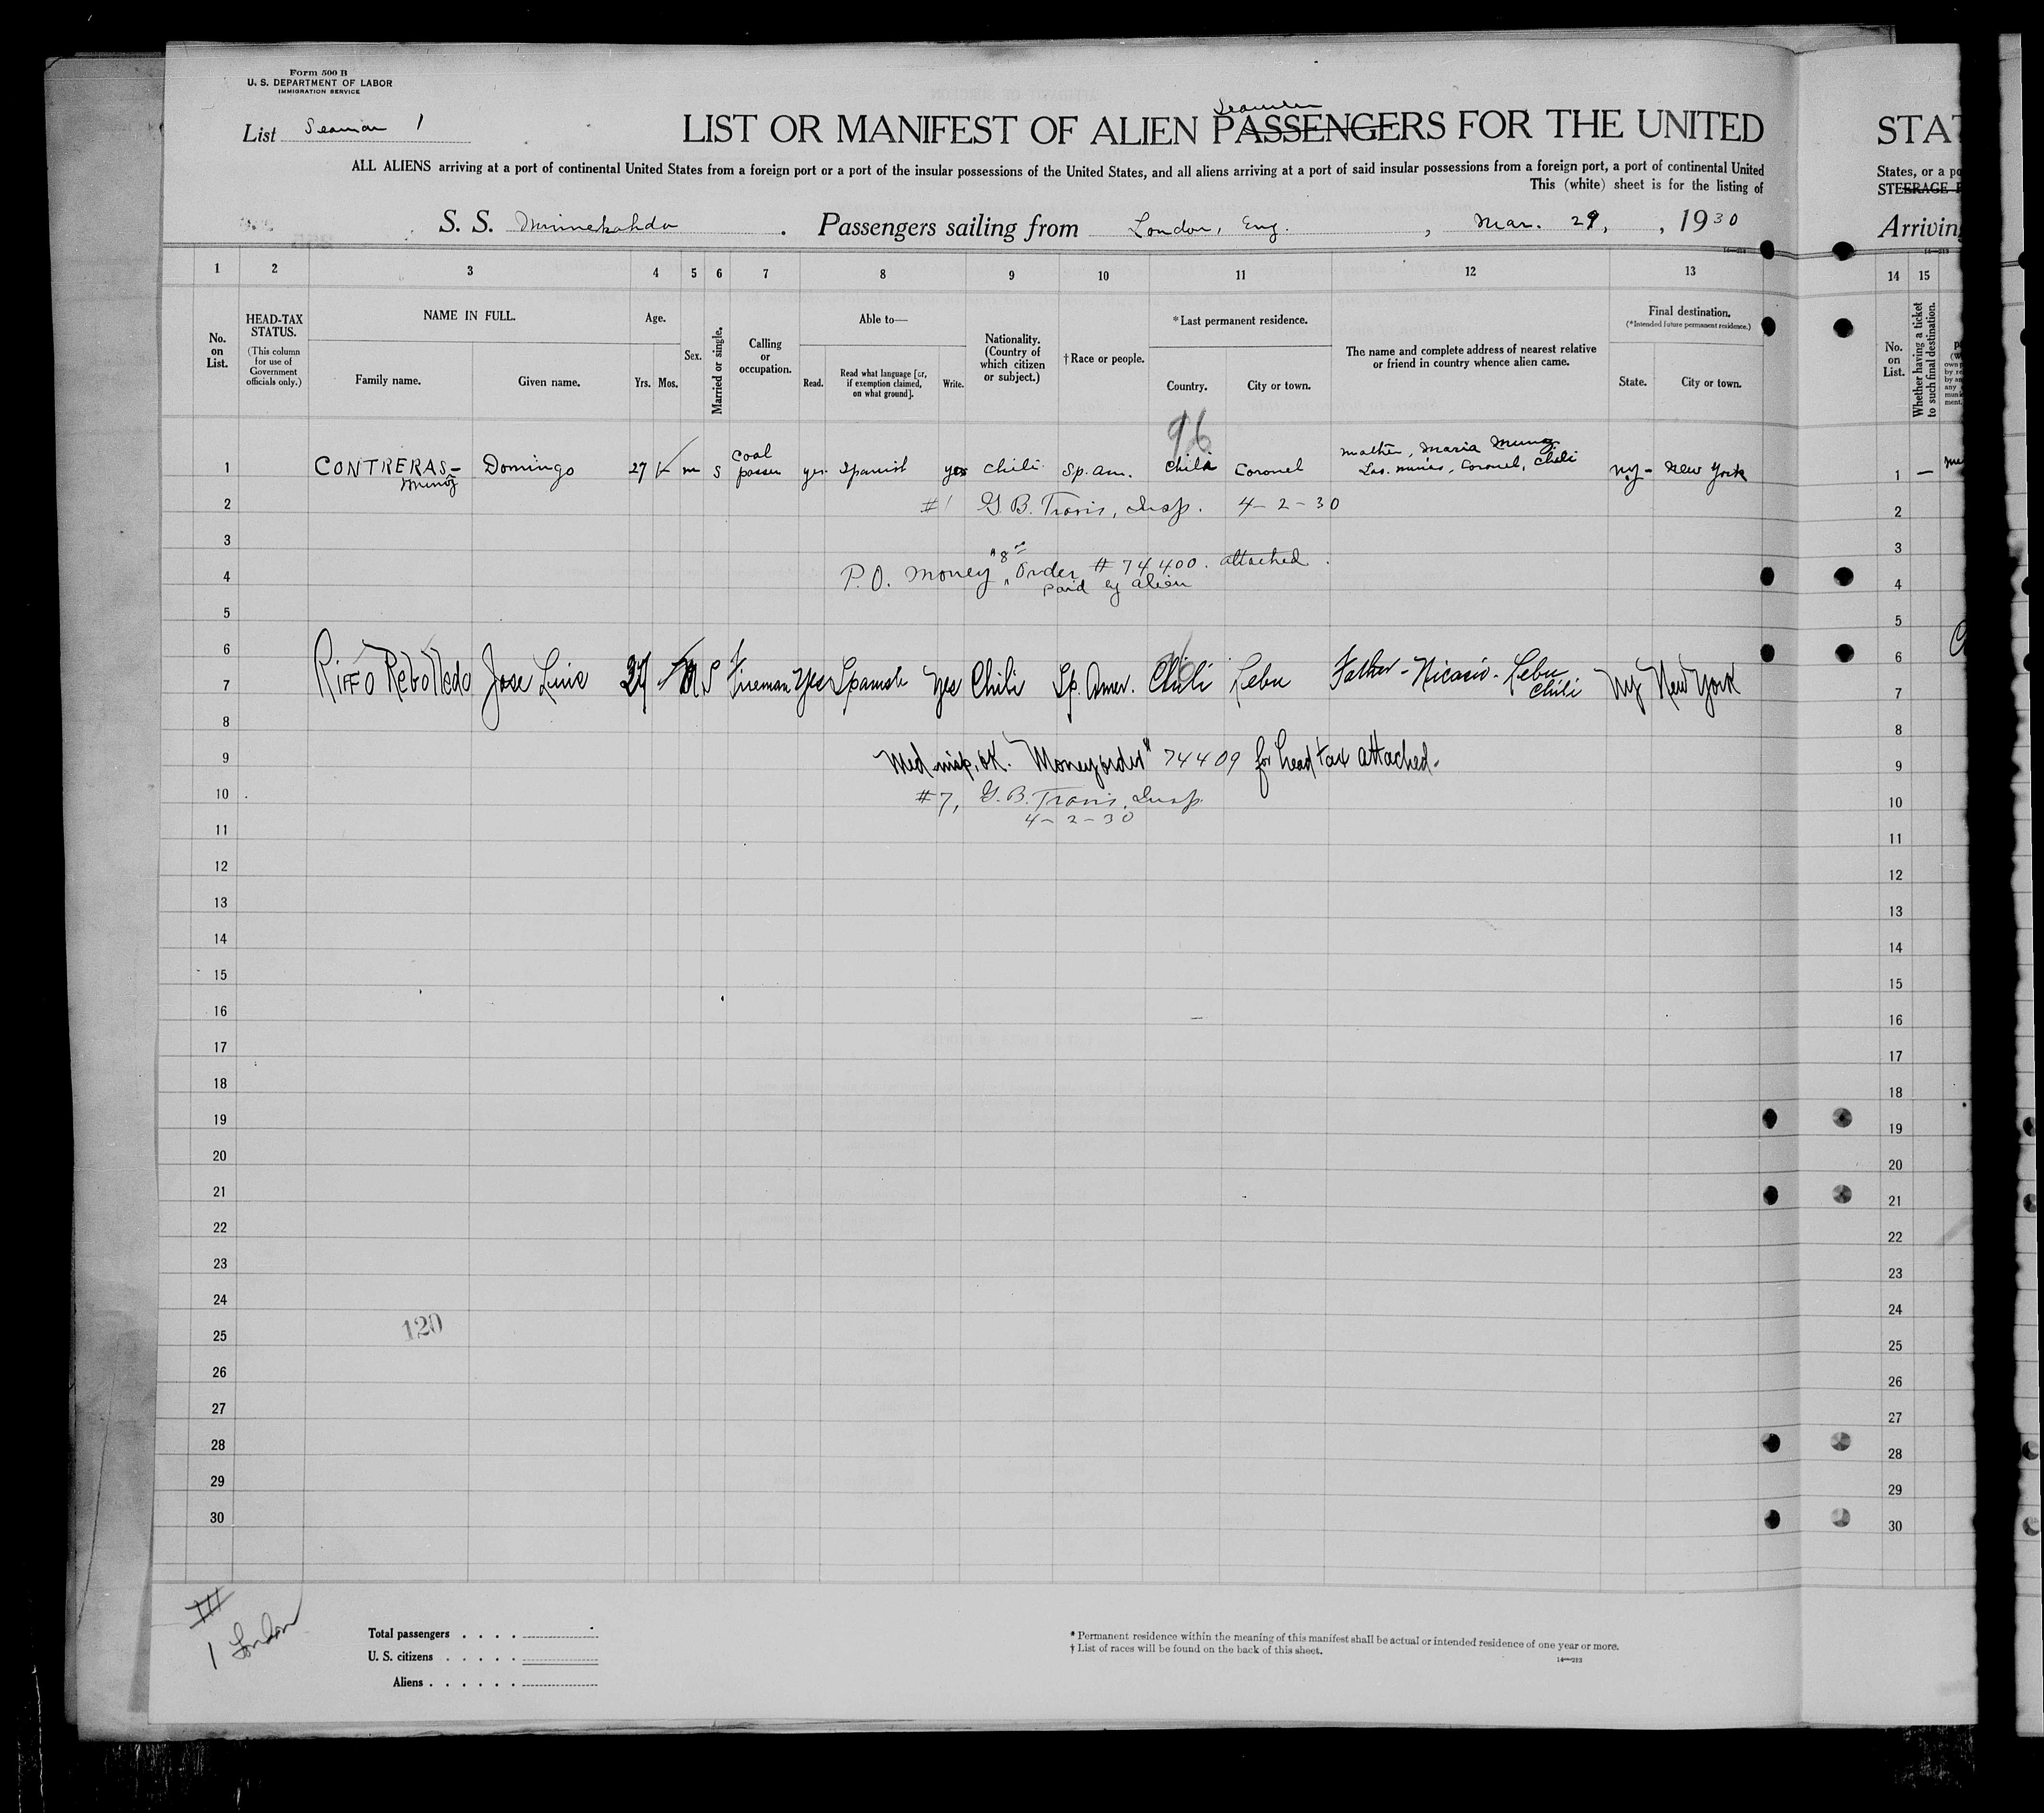 Form 500 B
U. S. DEPARTMENT OF LABOR
IMMIGRATION SERVICE
List Seaman 1
Seamen
LIST OR MANIFEST OF ALIEN PASSENGERS FOR THE UNITED
ALL ALIENS arriving at a port of continental United States from a foreign port or a port of the insular possessions of the United States, and all aliens arriving at a port of said insular possessions from a foreign port, a port of continental United
This (white) sheet is for the listing of
S. S. Minnekahda . Passengers sailing from London, Eng. , Mar. 29, , 1930
STAT
States, or a po
STEERAGE P
Arriving
1 2 3 4 5 6 7 8 9 10 11 12 13 14 15
No. on List.
HEAD-TAX STATUS.
(This column for use of Government officials only.)
NAME IN FULL.
Family name. Given name.
Age.
Yrs. Mos.
Sex.
Married or single.
Calling or occupation.
Able to—
Read. Read what language [or, if exemption claimed, on what ground]. Write.
Nationality. (Country of which citizen or subject.)
†Race or people.
*Last permanent residence.
Country. City or town.
The name and complete address of nearest relative or friend in country whence alien came.
Final destination.
(*Intended future permanent residence.)
State. City or town.
No. on List.
Whether having a ticket to such final destination.
96
1 CONTRERAS-Munoz Domingo 27 m S Coal passer yes Spanish yes Chili Sp. Am. Chili Coronel Mother, Maria Munoz Las. minas, Coronel, Chili NY- New York 1 —
2 #1 G.B. Travis, Insp. 4-2-30 2
3 3
4 P.O. Money "8⁰⁰ Order # 74400. attached. 4
paid by alien
5 5
6 6
7 Riffo Rebolledo Jose Luis 27 M S Fireman Yes Spanish Yes Chili Sp. Amer. Chili Lebu Father - Nicasio - Lebu Chili NY New York 7
8 8
9 Med insp. OK. Money order # 74409 for head tax attached. 9
10 #7, G.B. Travis, Insp. 10
4-2-30
11 11
12 12
13 13
14 14
15 15
16 16
17 17
18 18
19 19
20 20
21 21
22 22
23 23
24 24
120
25 25
26 26
27 27
28 28
29 29
30 30
III
1 London
Total passengers . . . .
U. S. citizens . . . . .
Aliens . . . . . .
* Permanent residence within the meaning of this manifest shall be actual or intended residence of one year or more.
† List of races will be found on the back of this sheet.
14—213